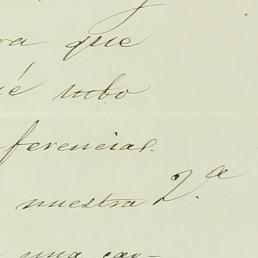 ra que
é hubo
ferencias.
nuestra 2.ª
una car-